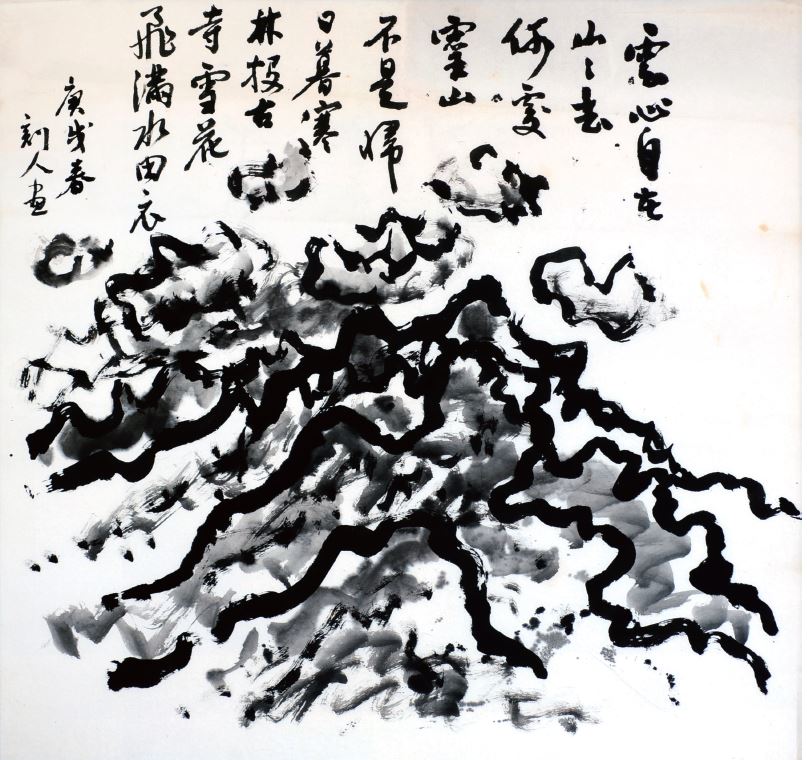 雲心自在
山〻去
何處
靈山
不是歸
日暮寒
林投古
寺雪花
飛滿水田衣
庚戌春
刻人画